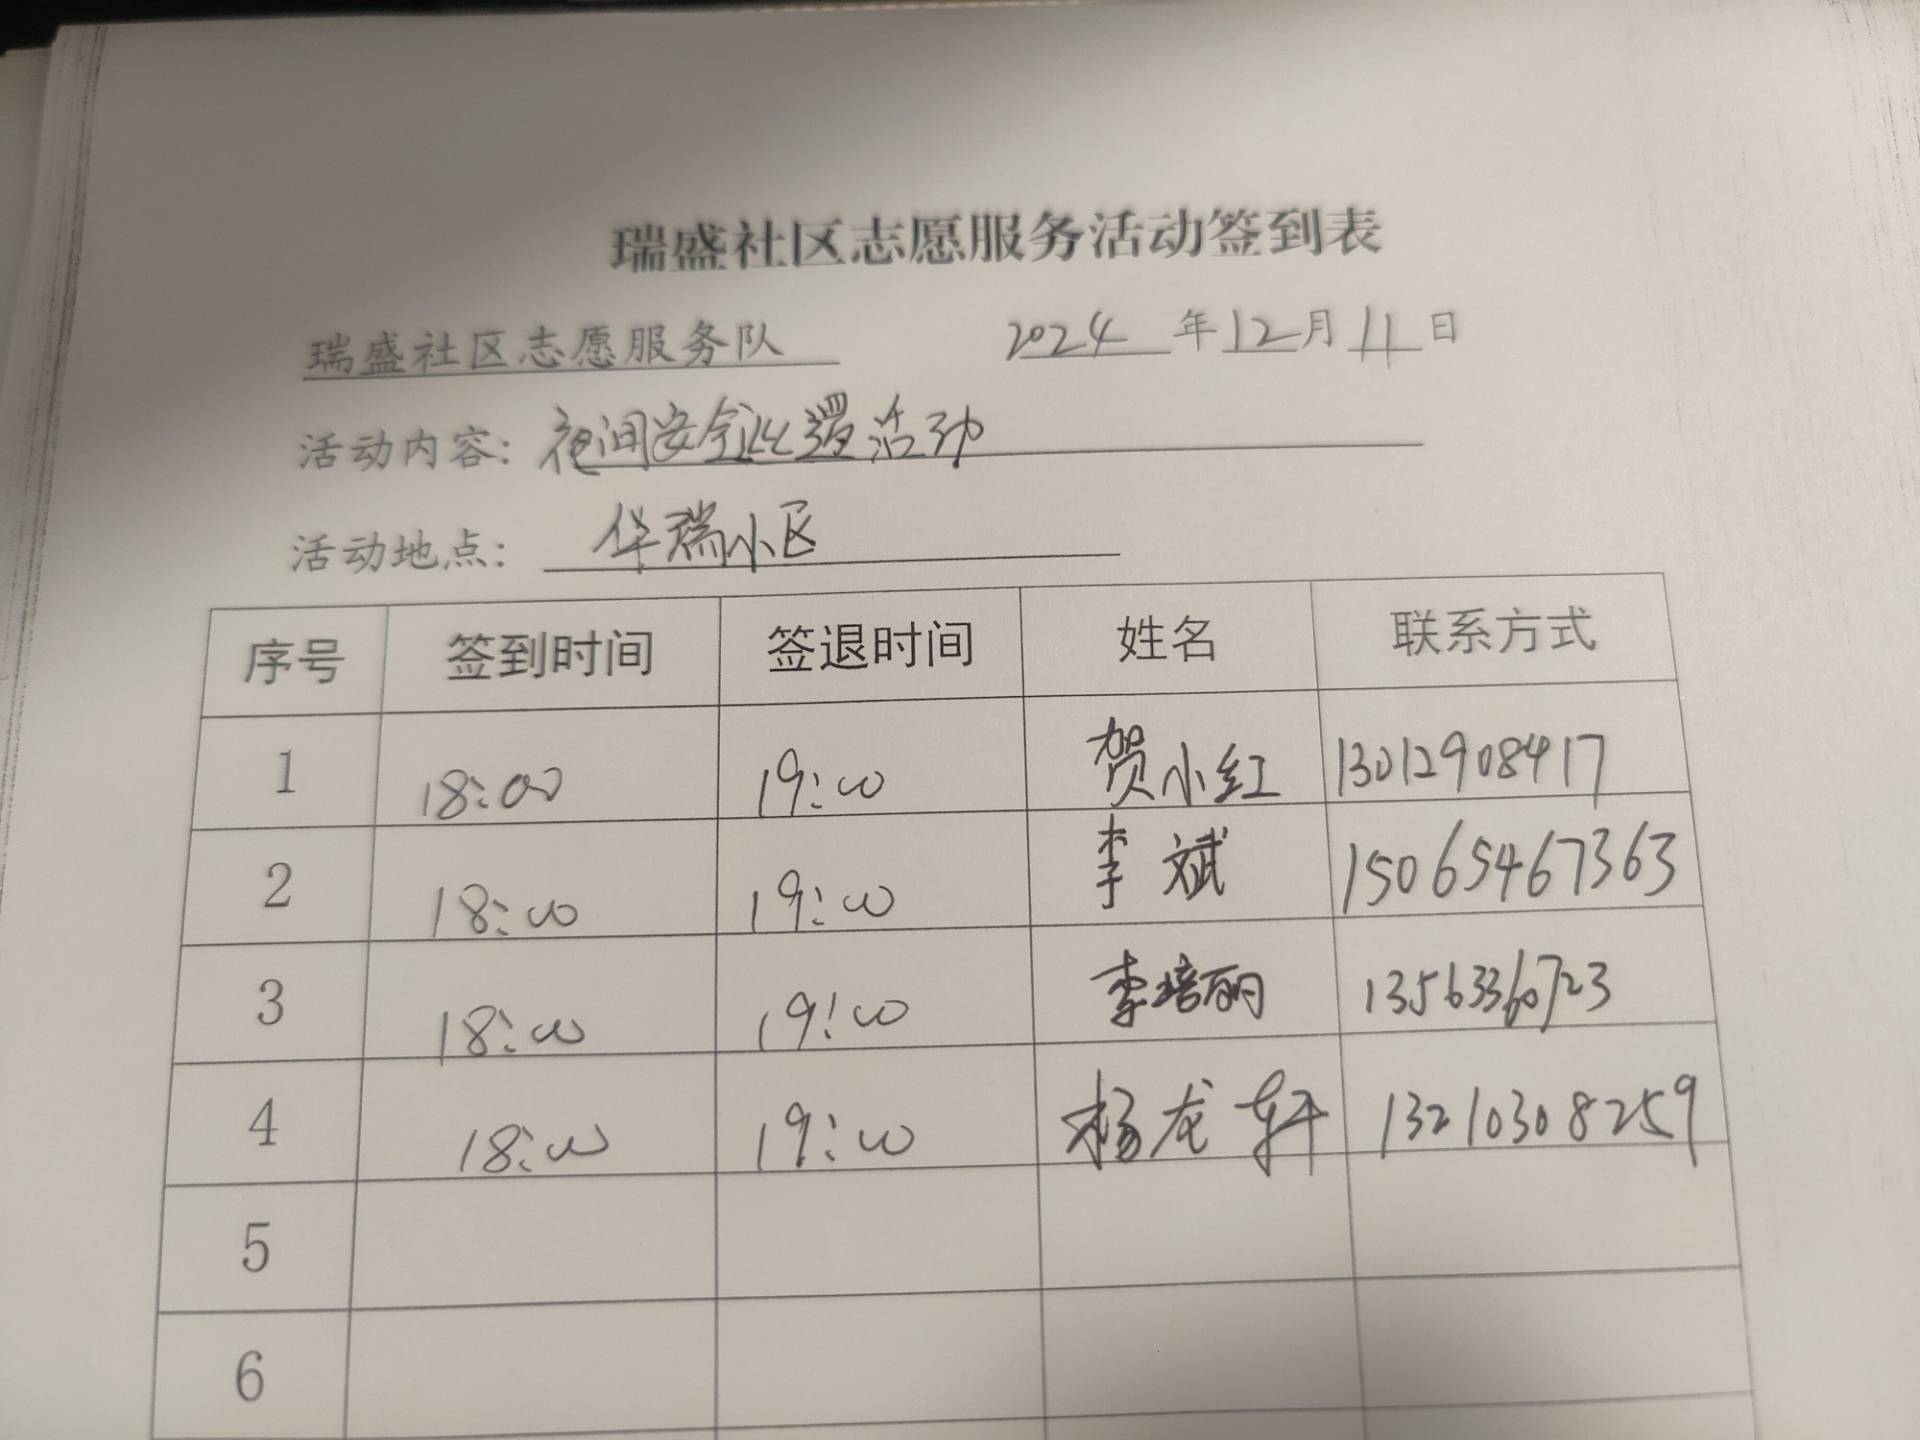 瑞盛社区志愿服务活动签到表
瑞盛社区志愿服务队 2024 年 12 月 11 日
活动内容: 夜间安全巡逻活动
活动地点: 华瑞小区
序号 签到时间 签退时间 姓名 联系方式
1 18:00 19:00 贺小红 13012908417
2 18:00 19:00 李斌 15065467363
3 18:00 19:00 李培丽 13563360723
4 18:00 19:00 杨龙轩 13210308259
5
6